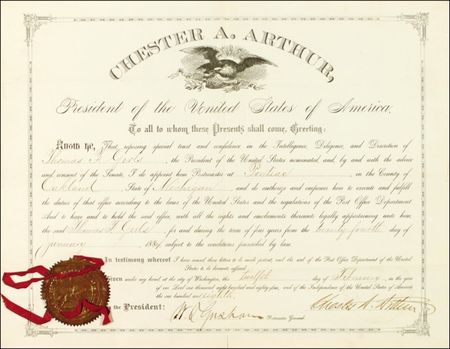 CHESTER A. ARTHUR,
President of the United States of America,
To all to whom these Presents shall come, Greeting:
Know Ye, That, reposing special trust and confidence in the Intelligence, Diligence, and Discretion of
Thomas, the President of the United States nominated, and, by and with the advice
and consent of the Senate, I do appoint him Postmaster at Pontiac, in the County of
Oakland, State of Michigan, and do authorize and empower him to execute and fulfill
the duties of that office according to the laws of the United States and the regulations of the Post Office Department
And to have and to hold the said office, with all the rights and emoluments thereunto legally appertaining unto him,
the said Thomas, for and during the term of four years from the twenty fourth day of
January 1884, subject to the conditions prescribed by law
In testimony whereof I have caused these letters to be made patent, and the seal of the Post Office Department of the United
States to be hereunto affixed.
Given under my hand at the city of Washington, the twelfth day of February, in the year
of our Lord one thousand eight hundred and eighty four, and of the Independence of the United States of America
the one hundred and eighth.
By the President:
W. Q. Gresham Postmaster General.
Chester A. Arthur